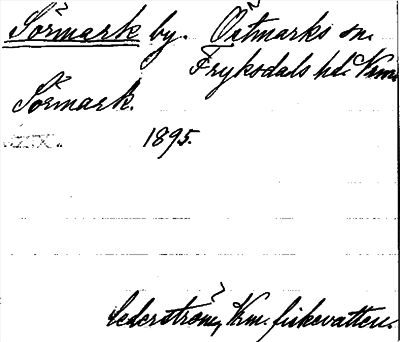 Sörmark by. Östmarks sn.
Fryksdals hd. Vrml.
Sörmark.
1895.
Cederström, Vrm. fiskevatten.